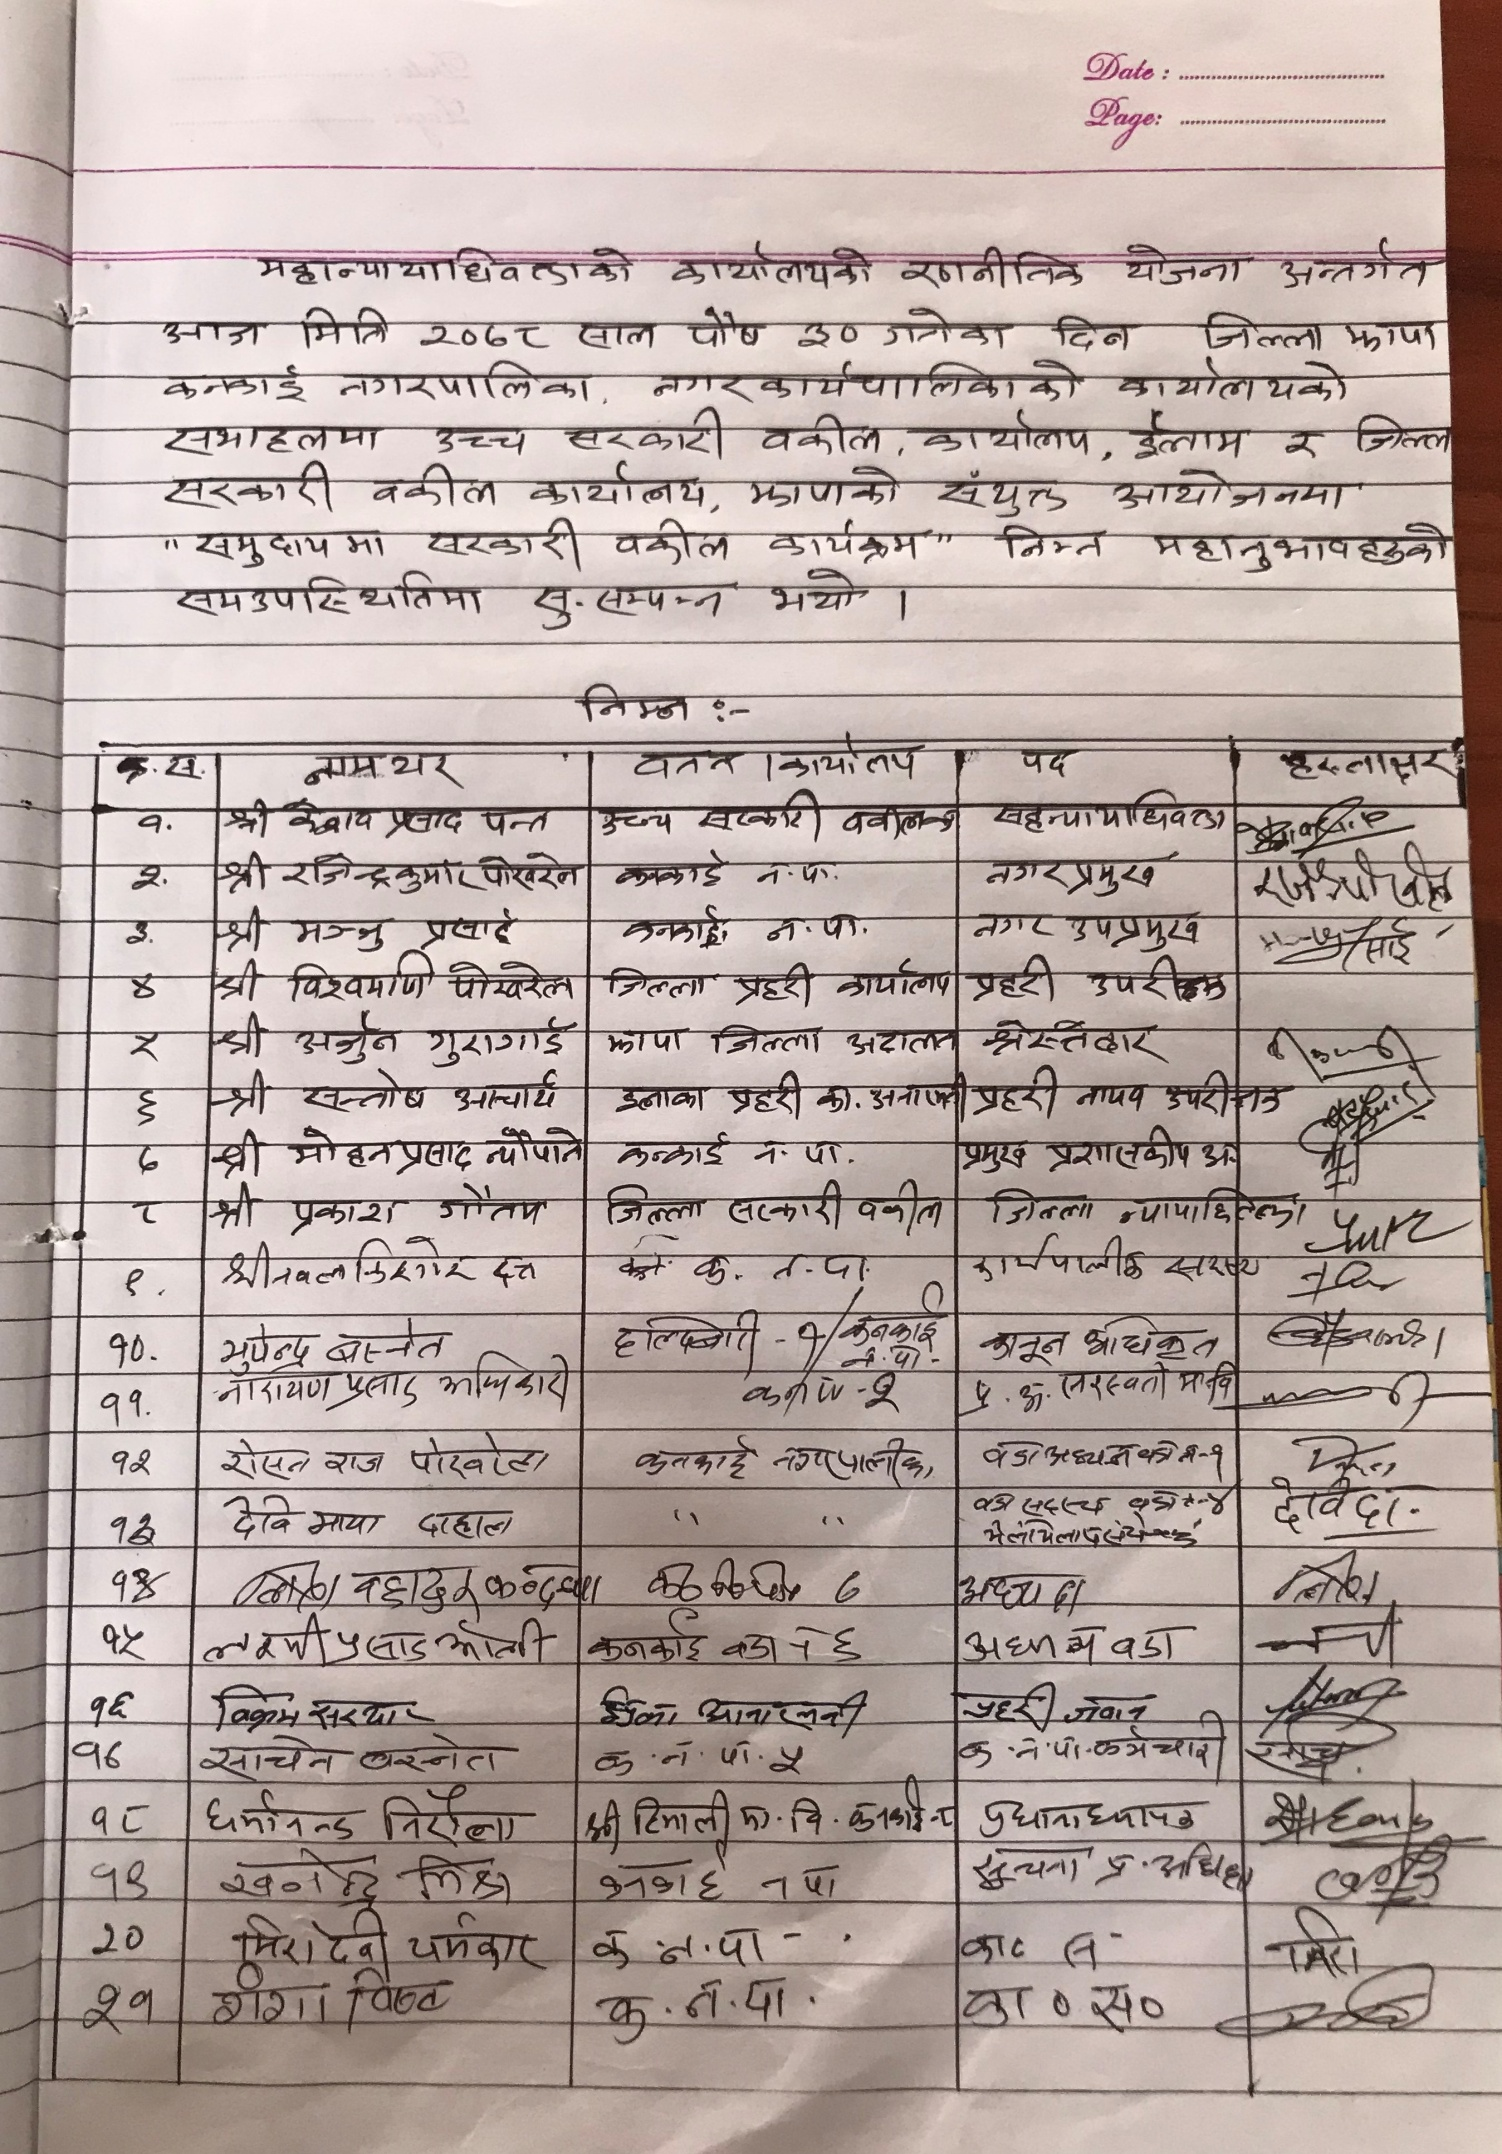 Date :
Page:
महान्यायाधिवक्ताको कार्यालयको रणनीतिक योजना अन्तर्गत
आज मिति २०७८ साल पौष ३० गतेका दिन जिल्ला झापा
कनकाई नगरपालिका, नगरकार्यपालिकाको कार्यालयको
सभाहलमा उच्च सरकारी वकील, कार्यालय, ईलाम र जिल्ला
सरकारी वकील कार्यालय, झापाको संयुक्त आयोजनमा
"समुदायमा सरकारी वकील कार्यक्रम" निम्न महानुभावहरुको
समउपास्थितिमा सु-सम्पन्न भयो ।
निम्न :-
क्र.स. नामथर वतन ।कार्यालय पद हस्ताक्षर
१. श्री केशव प्रसाद पन्त उच्च सरकारी वकीलका सहन्यायाधिवक्ता
२. श्री राजेन्द्रकुमार पोखरेल कनकाई न.पा. नगर प्रमुख
३. श्री मञ्जु प्रसाई कनकाई न.पा. नगर उपप्रमुख
४ श्री विश्वमणि पोखरेल जिल्ला प्रहरी कार्यालय प्रहरी उपरीक्षक
५ श्री अर्जुन गुरागाई झापा जिल्ला अदालत श्रेस्तेदार
६ श्री सन्तोष आचार्य इलाका प्रहरी का. प्रहरी नायव उपरीक्षक
७ श्री मोहनप्रसाद न्यौपाने कन्काई न.पा. प्रमुख प्रशासकीय अ.
८ श्री प्रकाश गौतम जिल्ला सरकारी वकील जिल्ला न्यायाधिवक्ता
९. श्री नवलकिशोर दत्त क. न.पा. कार्यपालीका सदस्य
१०. भुपेन्द्र बस्नेत हल्दिबारी - १/कनकाई न.पा. कानून अधिकृत
११. नारायण प्रसाद अधिकारी क.न.पा - २ प्र.अ. सरस्वती मा वि
१२ रोसन राज पोखरेल कनकाई नगरपालीका वडा अध्यक्ष वडा नं-१
१३ देवि माया दाहाल " " वडा सदस्य वडा नं-४ देवि दा.
१४ बहादुर ७ अध्यक्ष
१५ लक्ष्मी प्रसाद ओली कनकाई वडा नं ६ अध्यक्ष वडा
१६ विक्रम सरदार प्रहरी जवान
१७ साचेन बस्नेत क.न.पा. ५ क.न.पा.कर्मचारी
१८ धर्मानन्द निरौला श्री हिमाली मा.वि. कनकाई-८ प्रधानाध्यापक
१९ खगेन्द्र मिश्र कनकाई न पा सूचना प्र. अधिकृत
२० मिरा देवी कर्मकार क.न.पा - . का० स मिरा
२१ गंगा विष्ट क.न.पा. का०स०